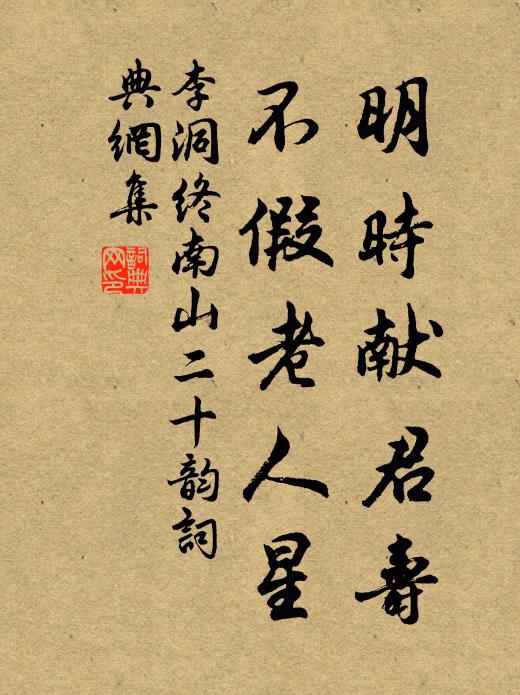 明時献君壽
不假老人星
李洞終南山二十韵詞
典網集
詞典
网印